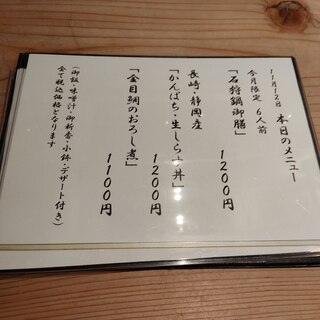 11月12日 本日のメニュー
今月限定 6人前
「石狩鍋御膳」
1200円
長崎・静岡産
「かんぱち・生しらす丼」
1200円
「金目鯛のおろし煮」
1100円
（御飯・味噌汁・御新香・小鉢・デザート付き）
全て税込価格となります